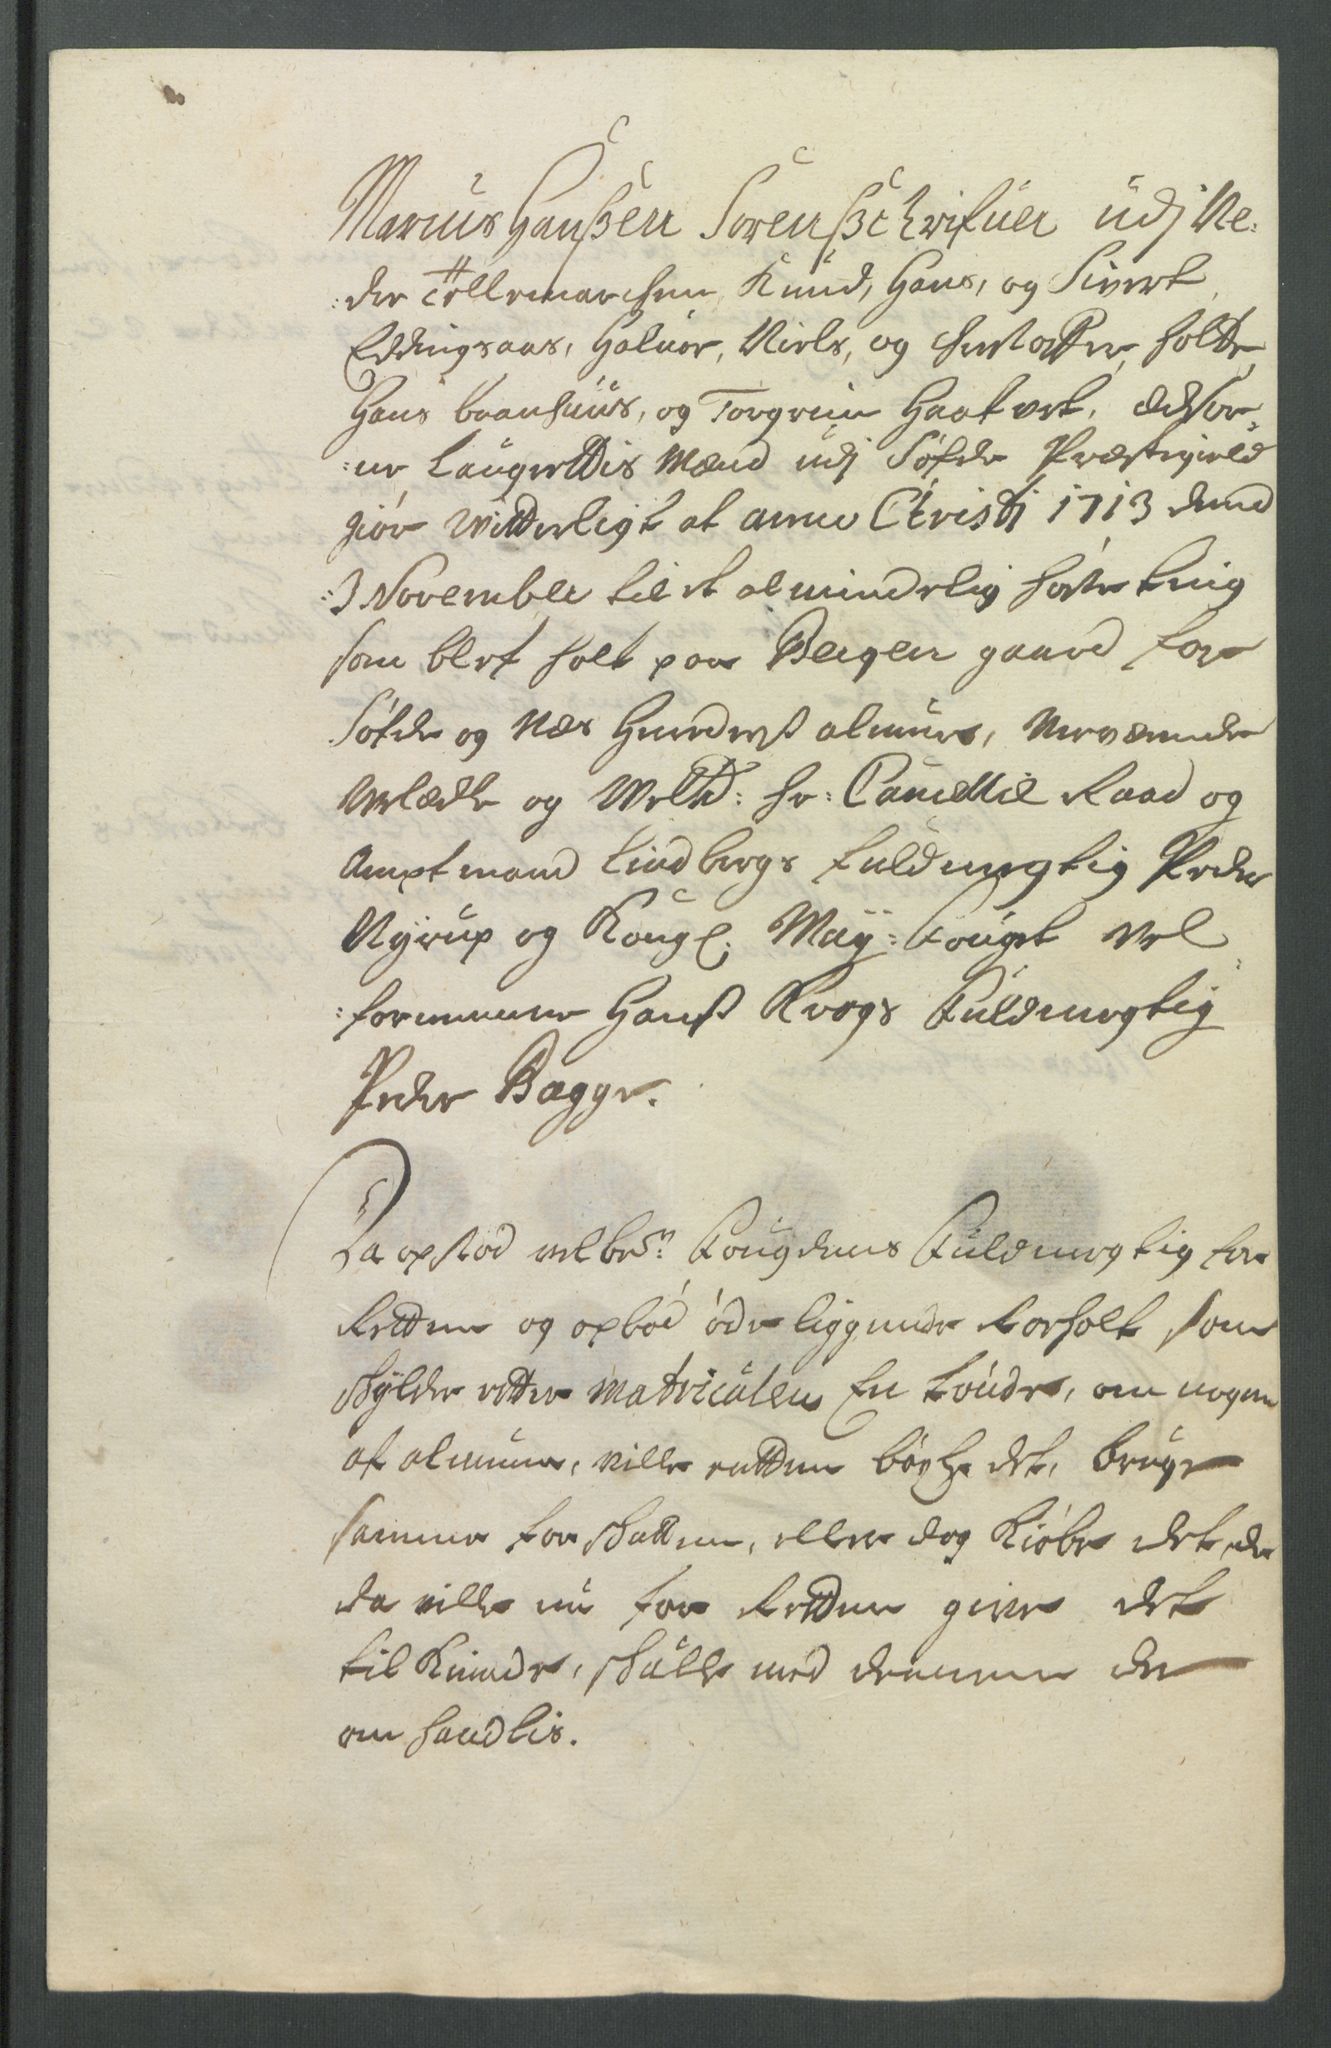 Marcus Hanßen Sorenßchrifuer udj Ne-
:der Tellemarchen, Knud, Hans, og Sivert
Eddingsaas, Haluor, Niels, og Christopher holtte,
Hans baanhuus, og Torgrim Haatvet, Edsor-
:ne Laugrettis Mænd udj Søfde Præstegield
giør Witterligt at anno Christi 1713 dend
:3 November til et almindelig høste ting
som blef holt paa Bergen gaard for
Søfde og Næs Hunderß almue, Nerværende
Velædle og Welb: hr: Cancellie Raad og
Amptmand Lindbergs fuldmegtig Peder
Nyrup og Kongl: May: fougt Vel
:fornemme Hanß Krogs fuldmegtig
Peder Bagge.
Da opstod velbem: fougdens fuldmegtig for
Retten og opbød øde liggende Rorholt som
skylder etter Matriculen En tønde, om nogen
af almuen, ville entten bøxle det, bruge
samme for skatten, eller dog kiøbe det, de
da ville nu for Retten give det
til kiende, skulle med dennem der
om handlis.